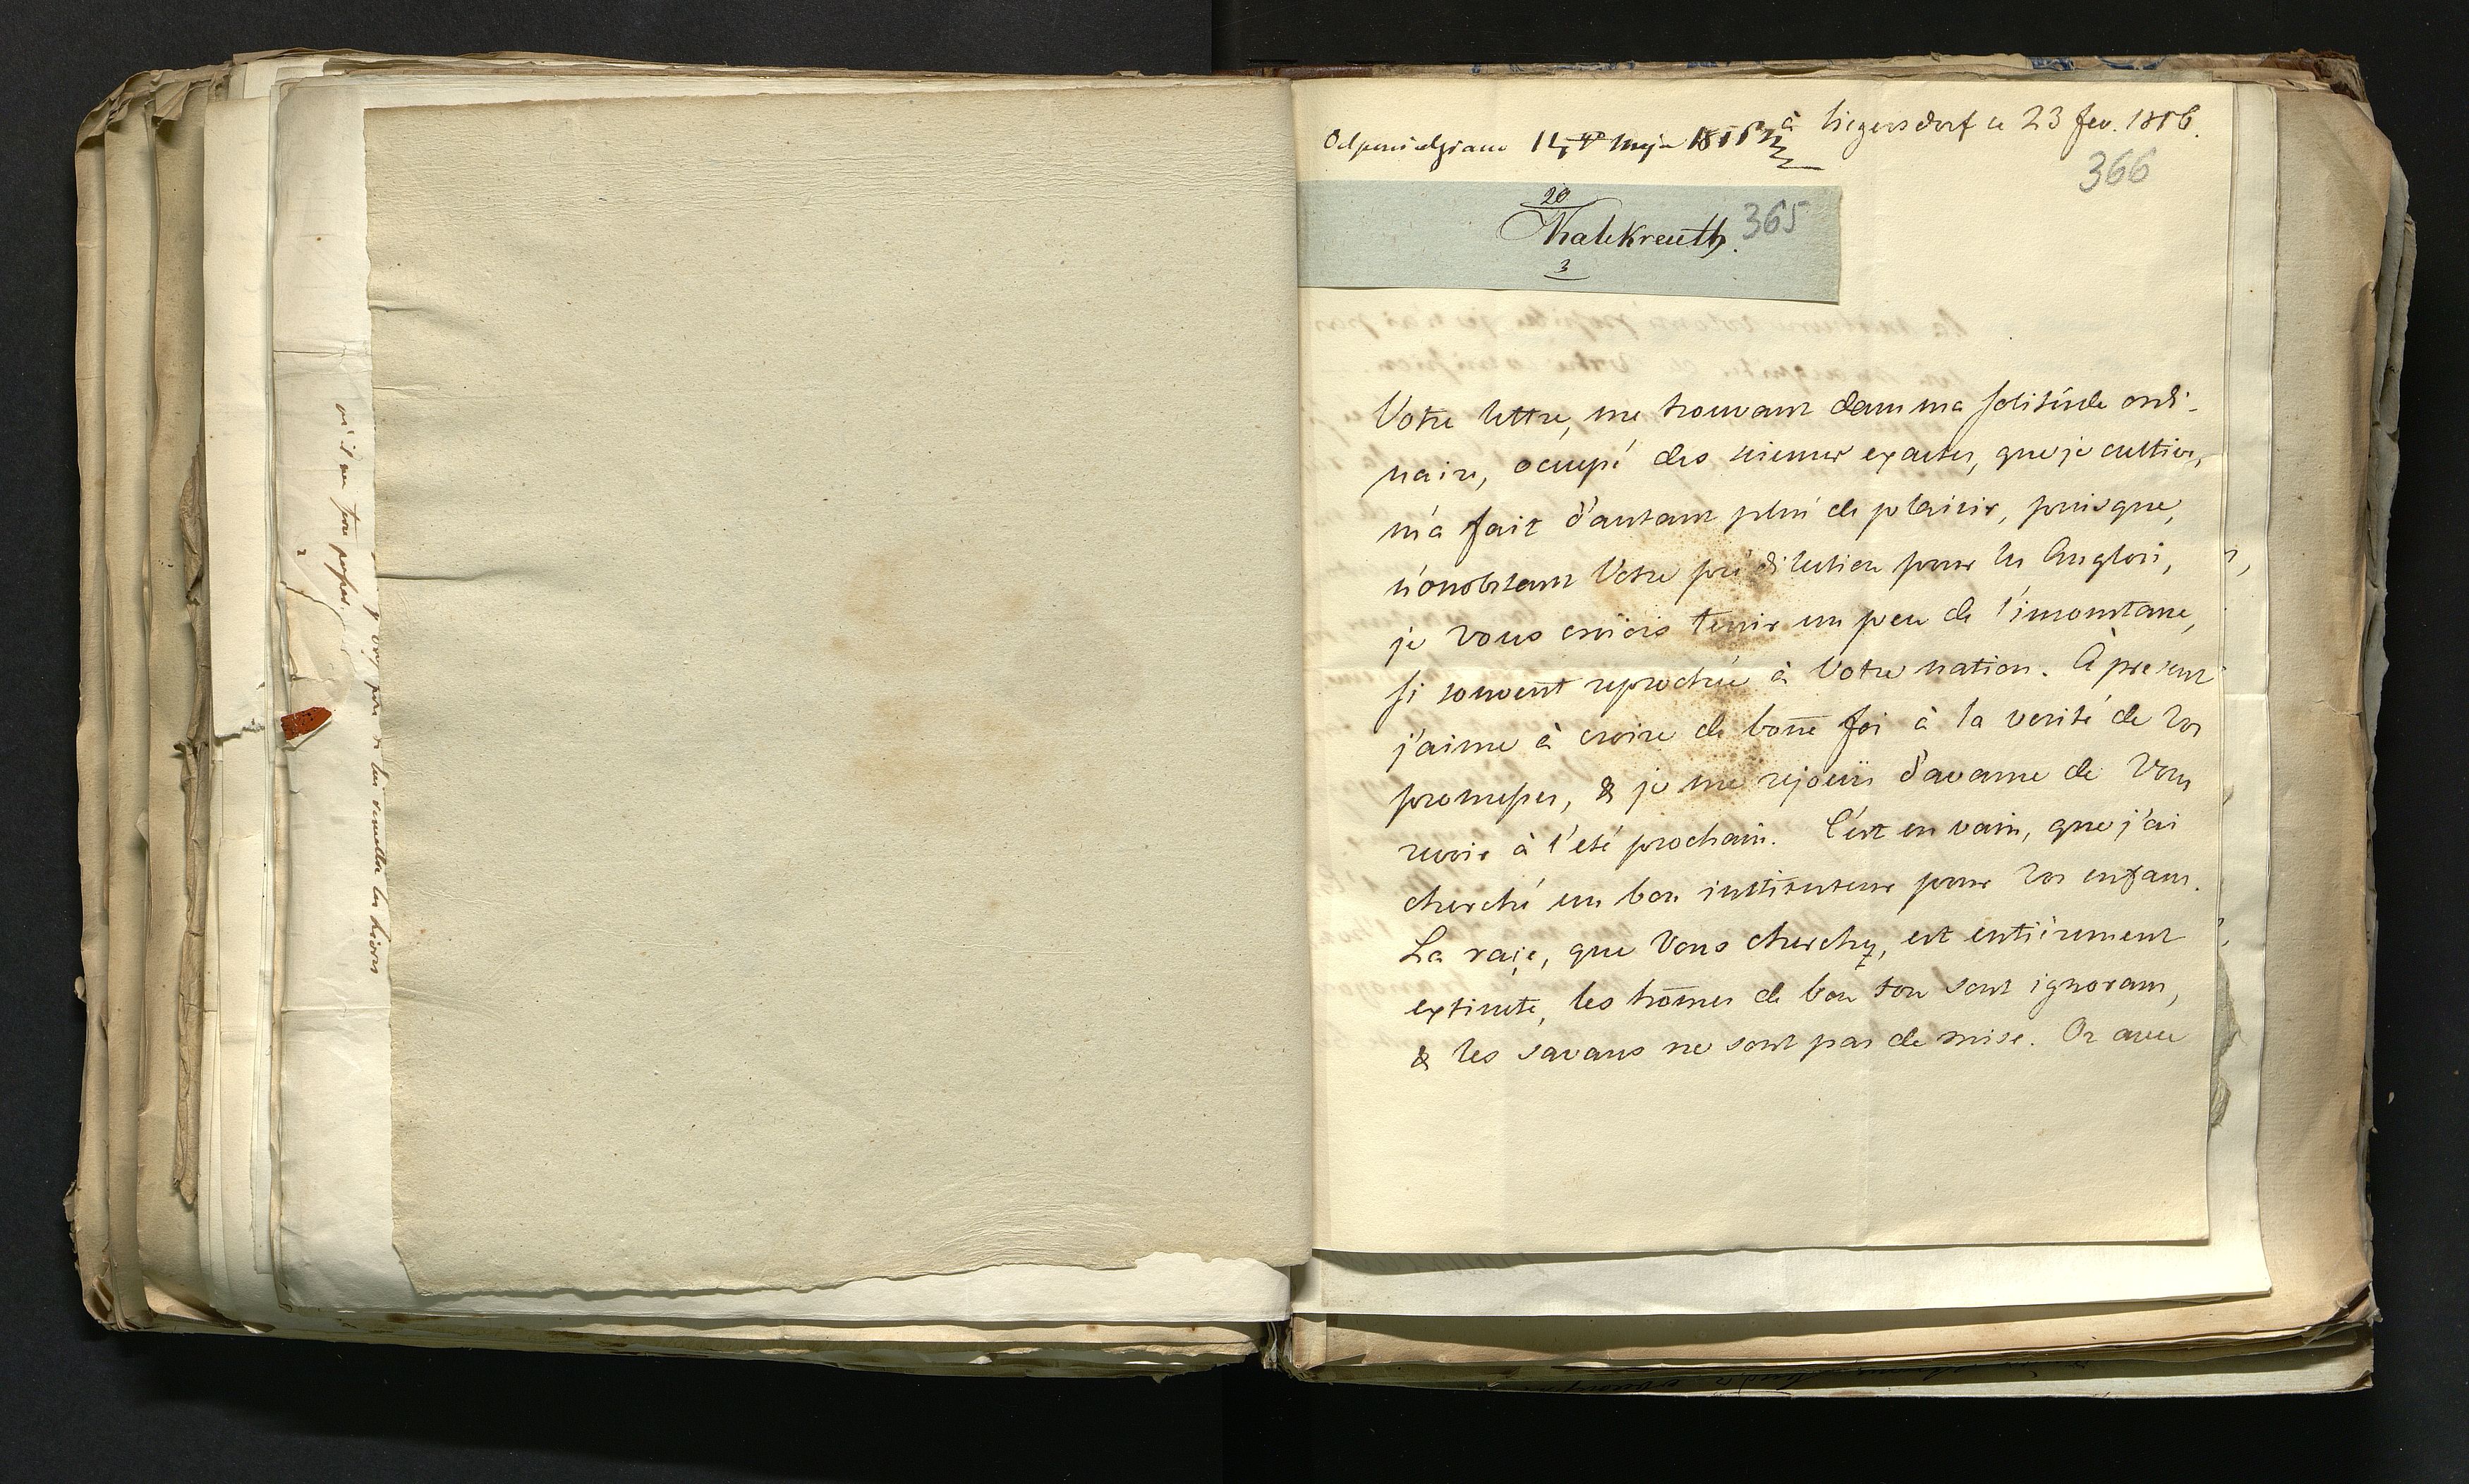 où il ne peut passer
lui demettre les livres
à Siegersdorf ce 23 fev. 1816.
Odpowiedziano 14 Maja 1816
366
20
Kalckreuth. 365
3
Votre lettre, me trouvant dans ma solitude ordi-
naire, occupé des sciences exactes, que je cultive,
m'a fait d'autant plus de plaisir, puisque,
nonobstant Votre prédilection pour les Anglois,
je Vous croiois tenir un peu de l'inconstance,
si souvent reprochée à Votre nation. À present
j'aime à croire de bone foi à la verité de Vos
promesses, & je me rejouis d'avance de Vous
revoir à l'eté prochain. C'est en vain, que j'ai
cherché un bon instituteur pour Vos enfans.
La raçe, que Vous cherchez, est entiérement
extincte, les homes de bon ton sont ignorans,
& les savans ne sont pas de mise. Or avec